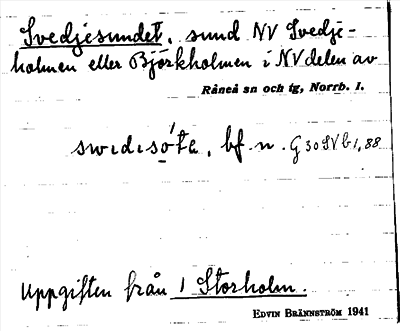 Svedjesundet, sund NV Svedje-
holmen eller Björkholmen i NV delen av
Råneå sn och tg, Norrb. l.
bf. n. G 30 SV b 1, 88
Uppgiften från 1 Storholm.
EDVIN BRÄNNSTRÖM 1941